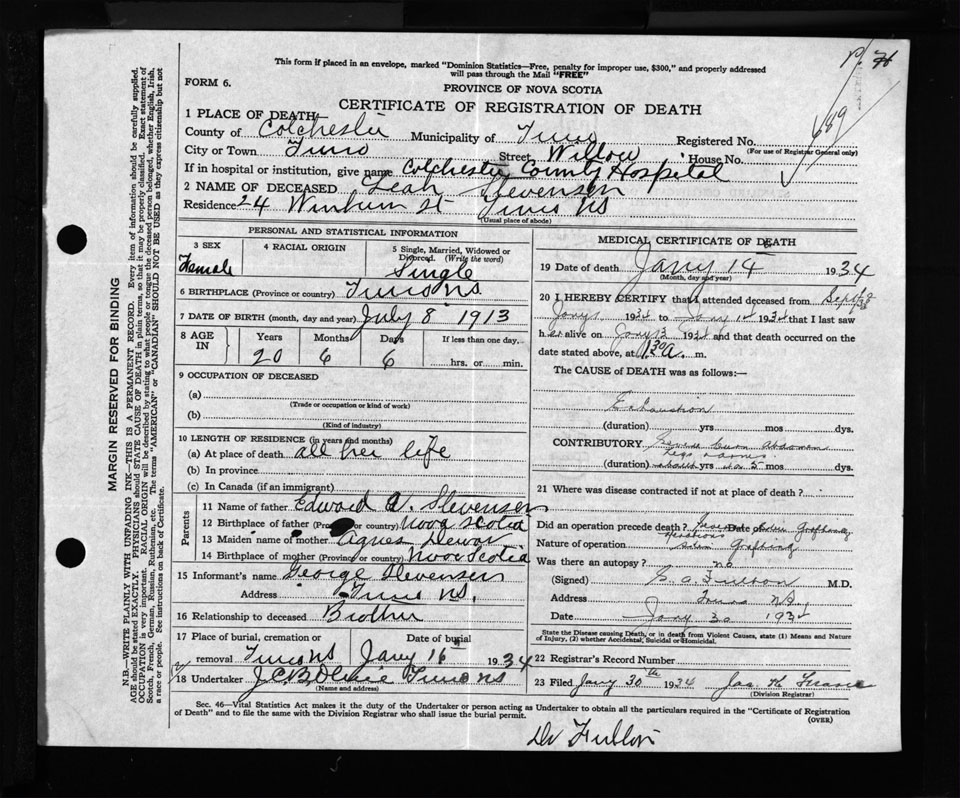 This form if placed in an envelope, marked "Dominion Statistics—Free, penalty for improper use, $300," and properly addressed
will pass through the Mail "FREE"
FORM 6.
PROVINCE OF NOVA SCOTIA
CERTIFICATE OF REGISTRATION OF DEATH
689
1 PLACE OF DEATH
County of Colchester Municipality of Truro Registered No.
(For use of Registrar General only)
City or Town Truro Street Willow House No.
If in hospital or institution, give name Colchester County Hospital
2 NAME OF DECEASED Leah Stevensen
Residence 24 St Truro NS
(Usual place of abode)
PERSONAL AND STATISTICAL INFORMATION
3 SEX 4 RACIAL ORIGIN 5 Single, Married, Widowed or Divorced. (Write the word)
Female Single
6 BIRTHPLACE (Province or country) Truro N.S.
7 DATE OF BIRTH (month, day and year) July 8 1913
8 AGE IN Years Months Days If less than one day.
20 6 6 hrs. or min.
9 OCCUPATION OF DECEASED
(a)
(Trade or occupation or kind of work)
(b)
(Kind of industry)
10 LENGTH OF RESIDENCE (in years and months)
(a) At place of death all her life
(b) In province
(c) In Canada (if an immigrant)
Parents
11 Name of father Edward A. Stevensen
12 Birthplace of father (Pro or country) Nova Scotia
13 Maiden name of mother Agnes Dewar
14 Birthplace of mother (Province or country) Nova Scotia
15 Informant's name George Stevensen
Address Truro N.S.
16 Relationship to deceased Brother
17 Place of burial, cremation or Date of burial
removal Truro NS Jany 16 1934
18 Undertaker Truro NS
(Name and address)
MEDICAL CERTIFICATE OF DEATH
19 Date of death Jany 14 1934
(Month, day and year)
20 I HEREBY CERTIFY that I attended deceased from Sept
Jany 1 1934 to Jany 14 1934 that I last saw
her alive on Jany 13 1934 and that death occurred on the
date stated above, at 130 a. m.
The CAUSE OF DEATH was as follows:—
Exhaustion
(duration) yrs mos dys.
CONTRIBUTORY Severe burn Abdomen
legs
(duration) yrs mos dys.
21 Where was disease contracted if not at place of death?
Did an operation precede death? Date Grafting
Nature of operation Skin Grafting
Was there an autopsy? no
(Signed) Fulton M.D.
Address Truro NS
Date Jany 30 1934
State the Disease causing Death, or in death from Violent Causes, state (1) Means and Nature of Injury, (2) whether Accidental, Suicidal or Homicidal.
22 Registrar's Record Number
23 Filed Jany 30th 1934
(Division Registrar)
Sec. 46—Vital Statistics Act makes it the duty of the Undertaker or person acting as Undertaker to obtain all the particulars required in the "Certificate of Registration
of Death" and to file the same with the Division Registrar who shall issue the burial permit.
(OVER)
Dr Fulton
MARGIN RESERVED FOR BINDING
N.B.—WRITE PLAINLY WITH UNFADING INK—THIS IS A PERMANENT RECORD. Every item of information should be carefully supplied.
AGE should be stated EXACTLY. PHYSICIANS should state CAUSE OF DEATH in plain terms, so that it may be properly classified. Exact statement of
OCCUPATION is very important. RACIAL ORIGIN will be described by stating to what people or tongue the deceased person belonged, whether English, Irish,
Scotch, French, German, Russian, Ruthenian, etc. The terms "AMERICAN" or "CANADIAN" SHOULD NOT BE USED as they express citizenship but not
a race or people. See instructions on back of Certificate.